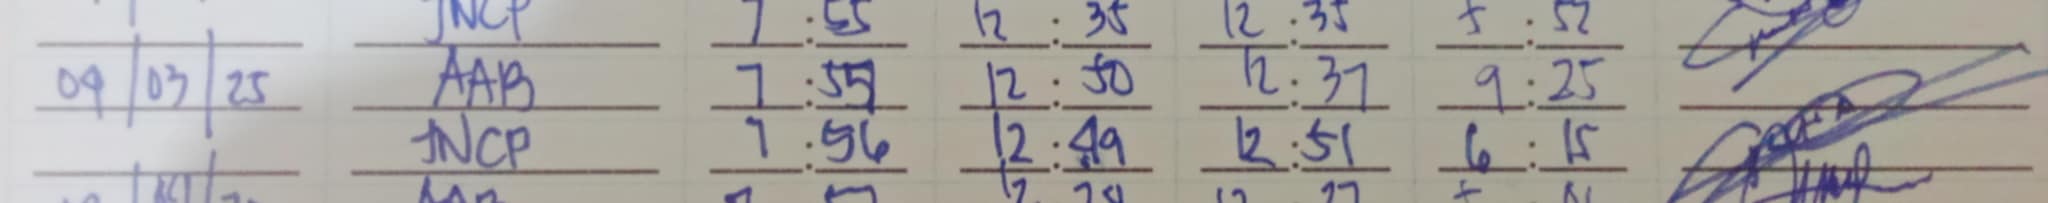 JNCP 7:55 12:35 12:35 5:52
09/03/25 AAB 7:55 12:50 12:37 9:25
JNCP 7:56 12:49 12:51 6:15